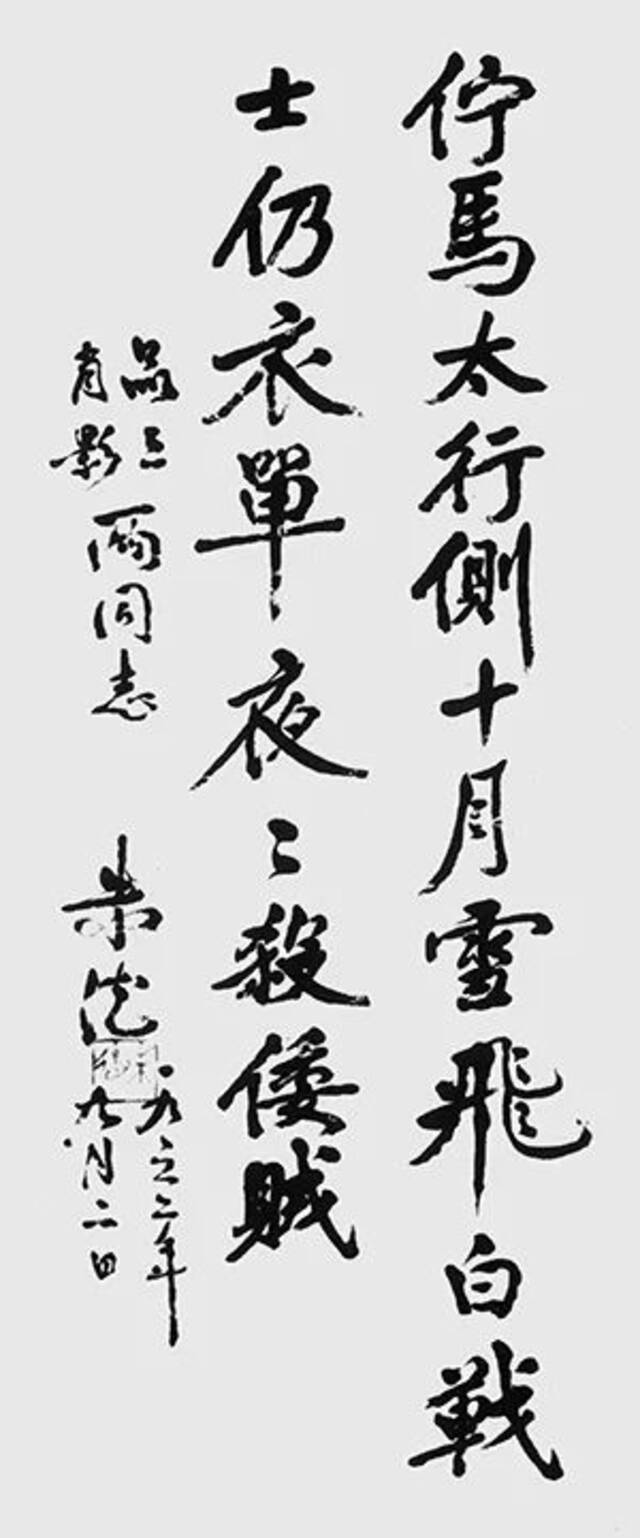 佇馬太行側十月雪飛白戰
士仍衣單夜〻殺倭賊
品三
肖影
两同志
朱德
一九六二年
九月二日